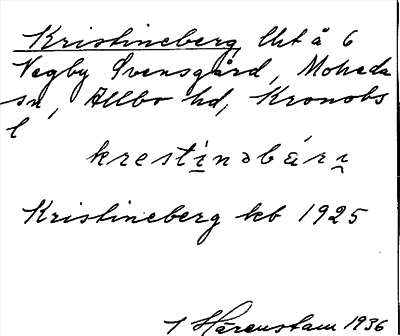 Kristineberg, lht å 6
Vegby Svensgård, Moheda
sn, Allbo hd, Kronobs
l
krestinəbári
Kristineberg kb 1925
Härenstam 1936